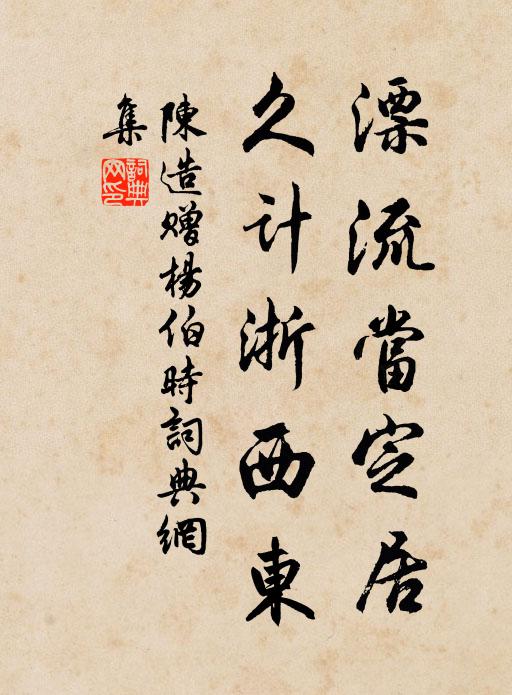 漂流當定居
久计浙西東
陳造贈楊伯時詞典網
集
詞典
网印